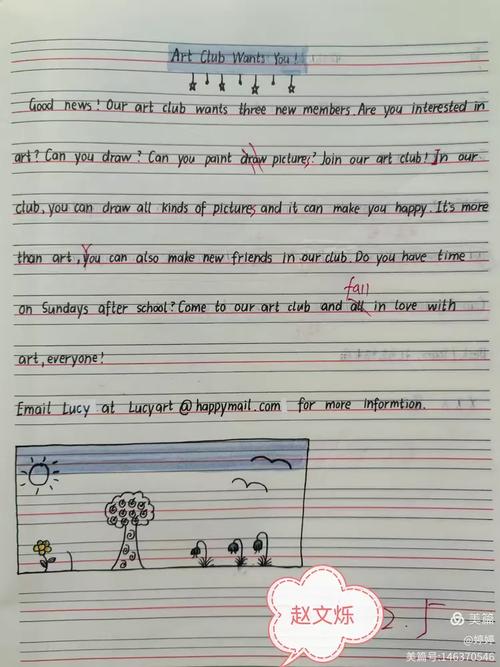 Art Club Wants You!
Good news! Our art club wants three new members. Are you interested in
art? Can you draw? Can you paint draw pictures? Join our art club! In our
club, you can draw all kinds of pictures and it can make you happy. It's more
than art, you can also make new friends in our club. Do you have time
fall
on Sundays after school? Come to our art club and all in love with
art, everyone!
Email Lucy at Lucyart@happymail.com for more informtion.
赵文烁
美篇
@婷婷
美篇号:146370546